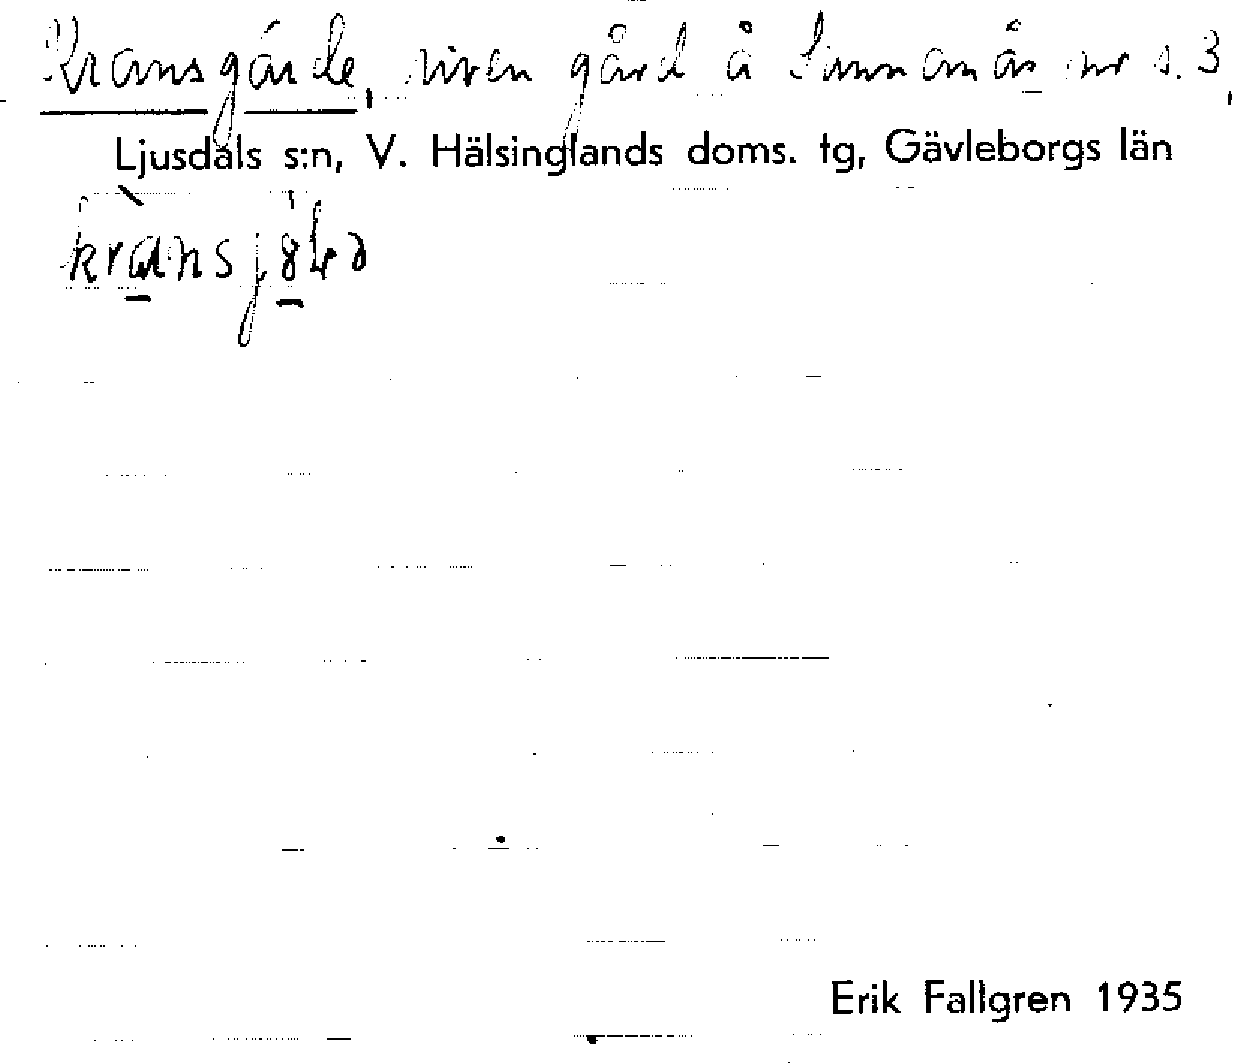 Kransgärde, riven gård å Sunnanås nr s. 3,
Ljusdals s:n, V. Hälsinglands doms. tg, Gävleborgs län
Erik Fallgren 1935